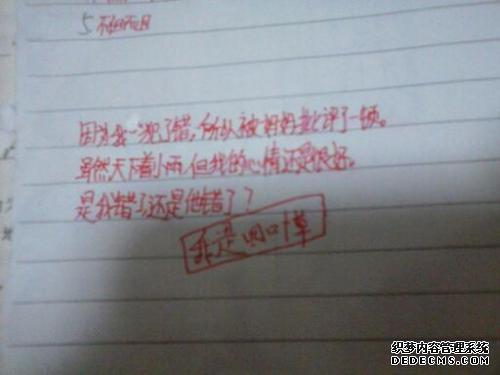 5 不但而且
因为我一犯了错,所以被妈妈批评了一顿。
虽然天下着小雨,但我的心情还是很好。
是我错了还是他错了?
我是四叶草
织梦内容管理系统
DEDECMS.COM